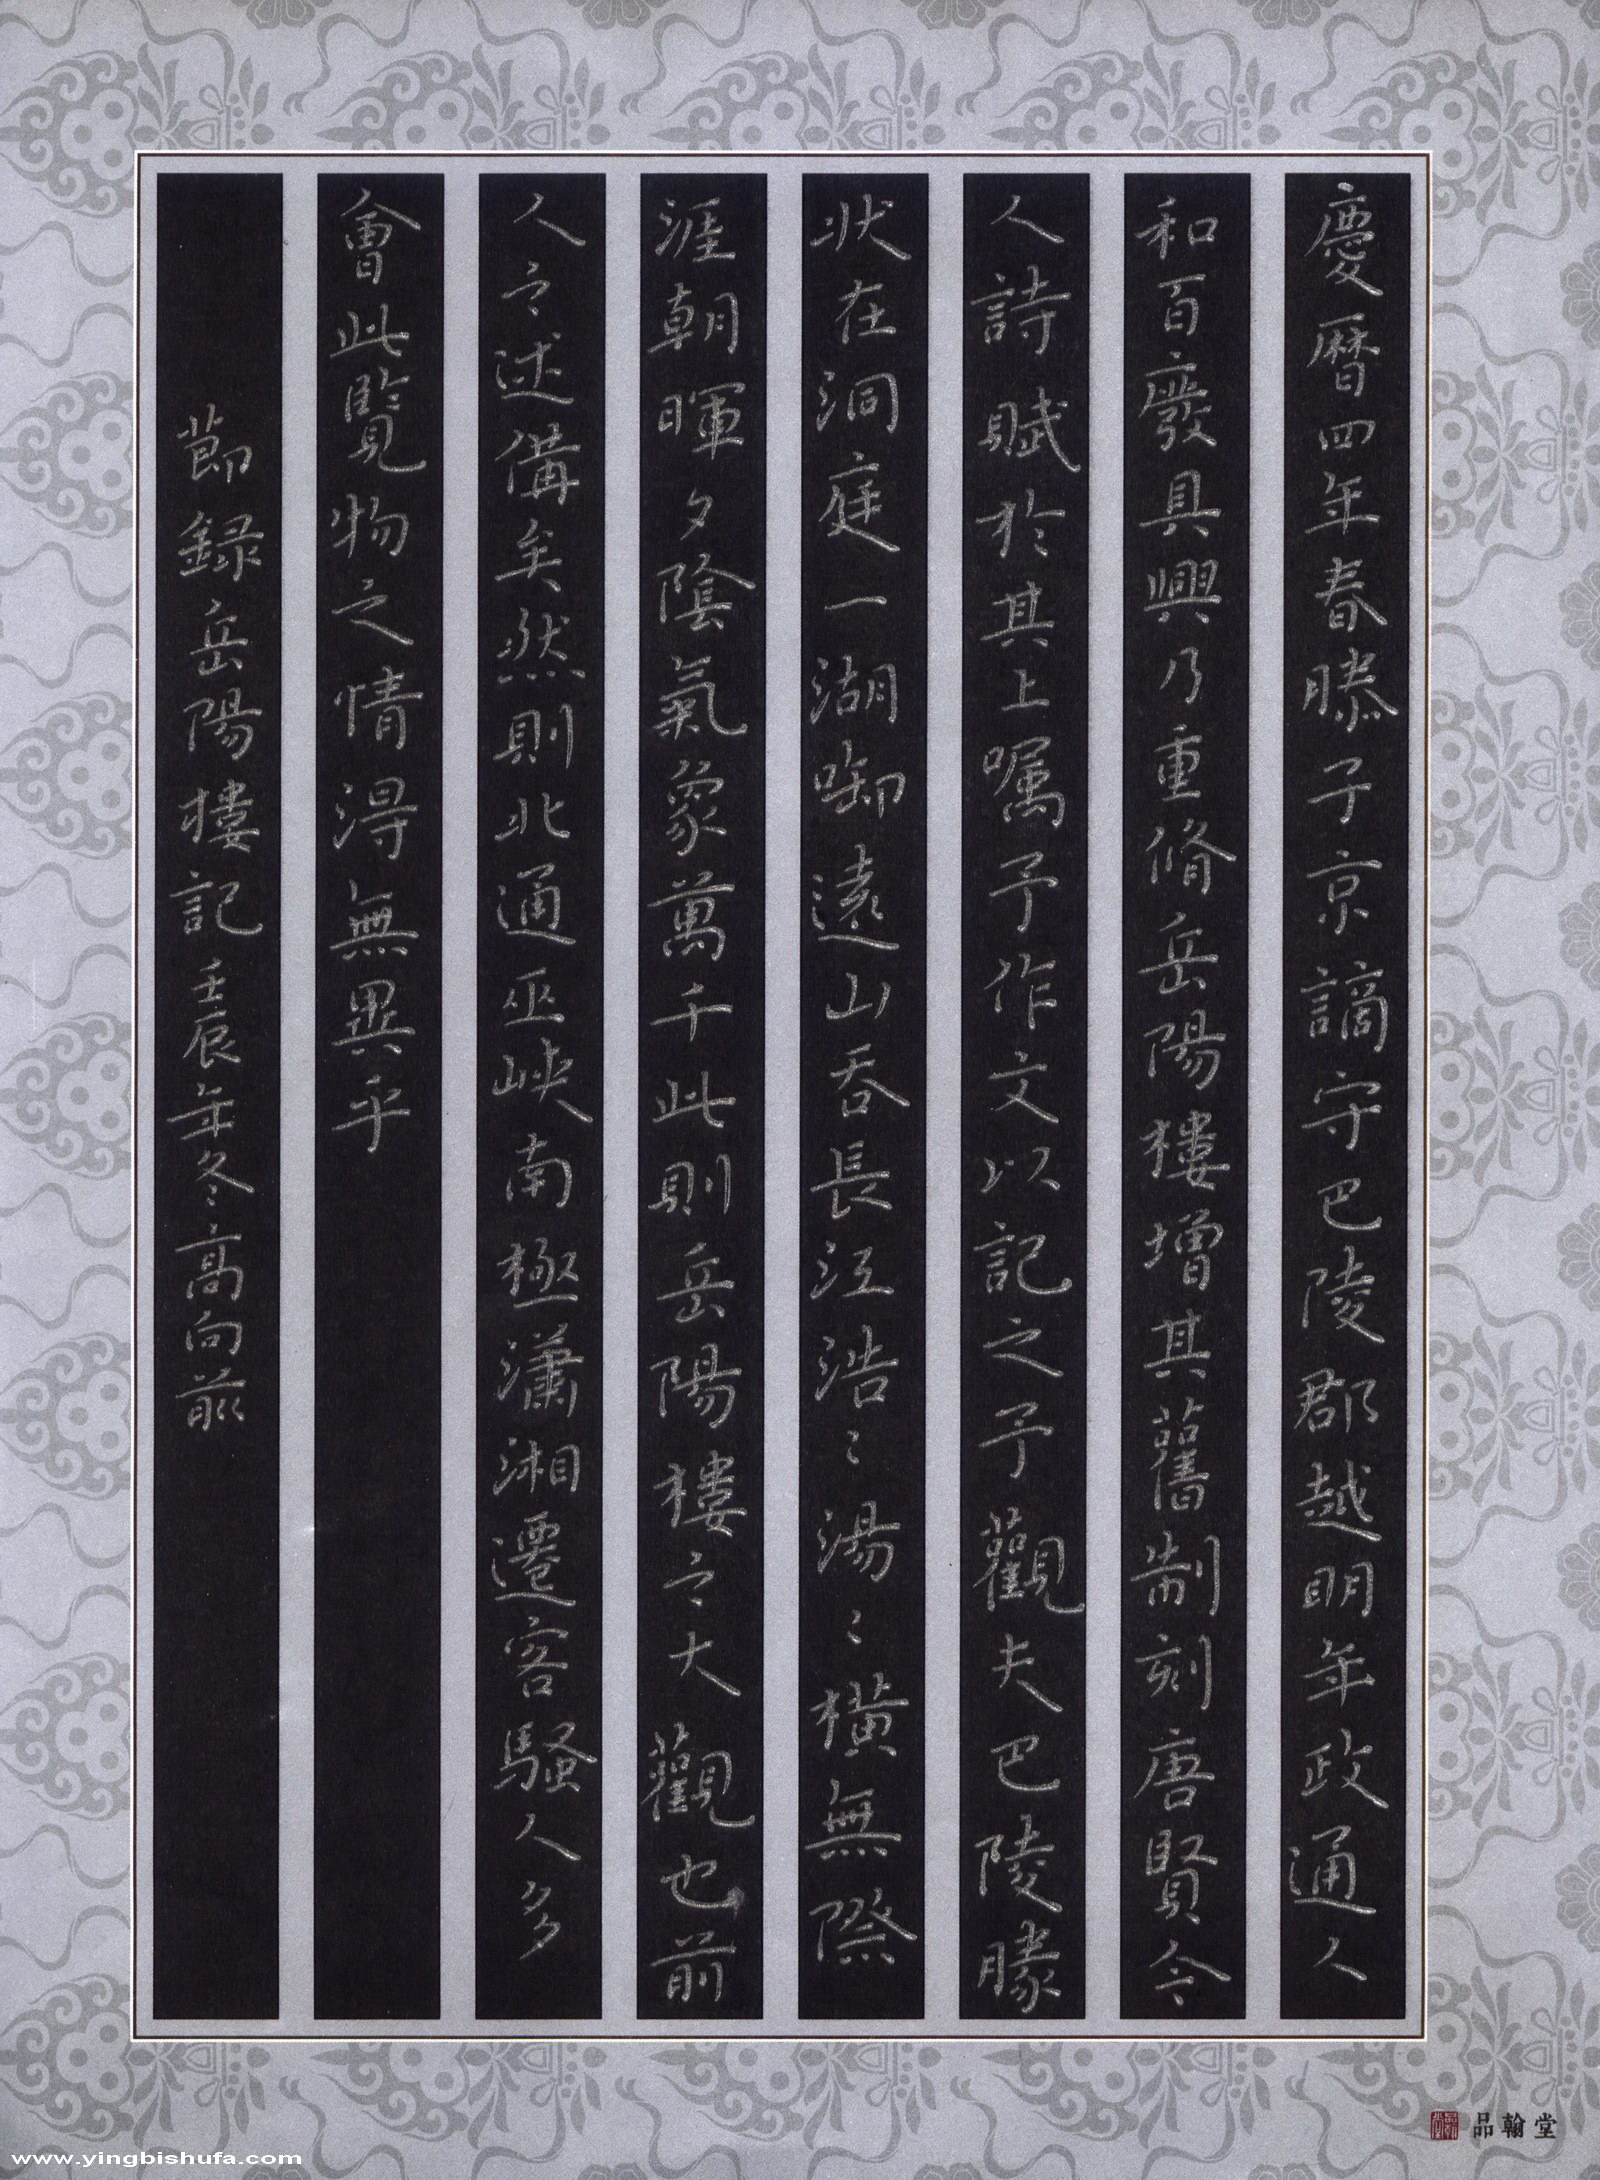 慶曆四年春滕子京謫守巴陵郡越明年政通人
和百廢具興乃重脩岳陽樓增其舊制刻唐賢今
人詩賦於其上嘱予作文以記之予觀夫巴陵勝
狀在洞庭一湖啣遠山吞長江浩〻湯〻橫無際
涯朝暉夕陰氣象萬千此則岳陽樓之大觀也前
人之述備矣然則北通巫峽南極瀟湘遷客騷人多
會此覽物之情得無異乎
節録岳陽樓記壬辰年冬高向前
品翰堂
www.yingbishufa.com